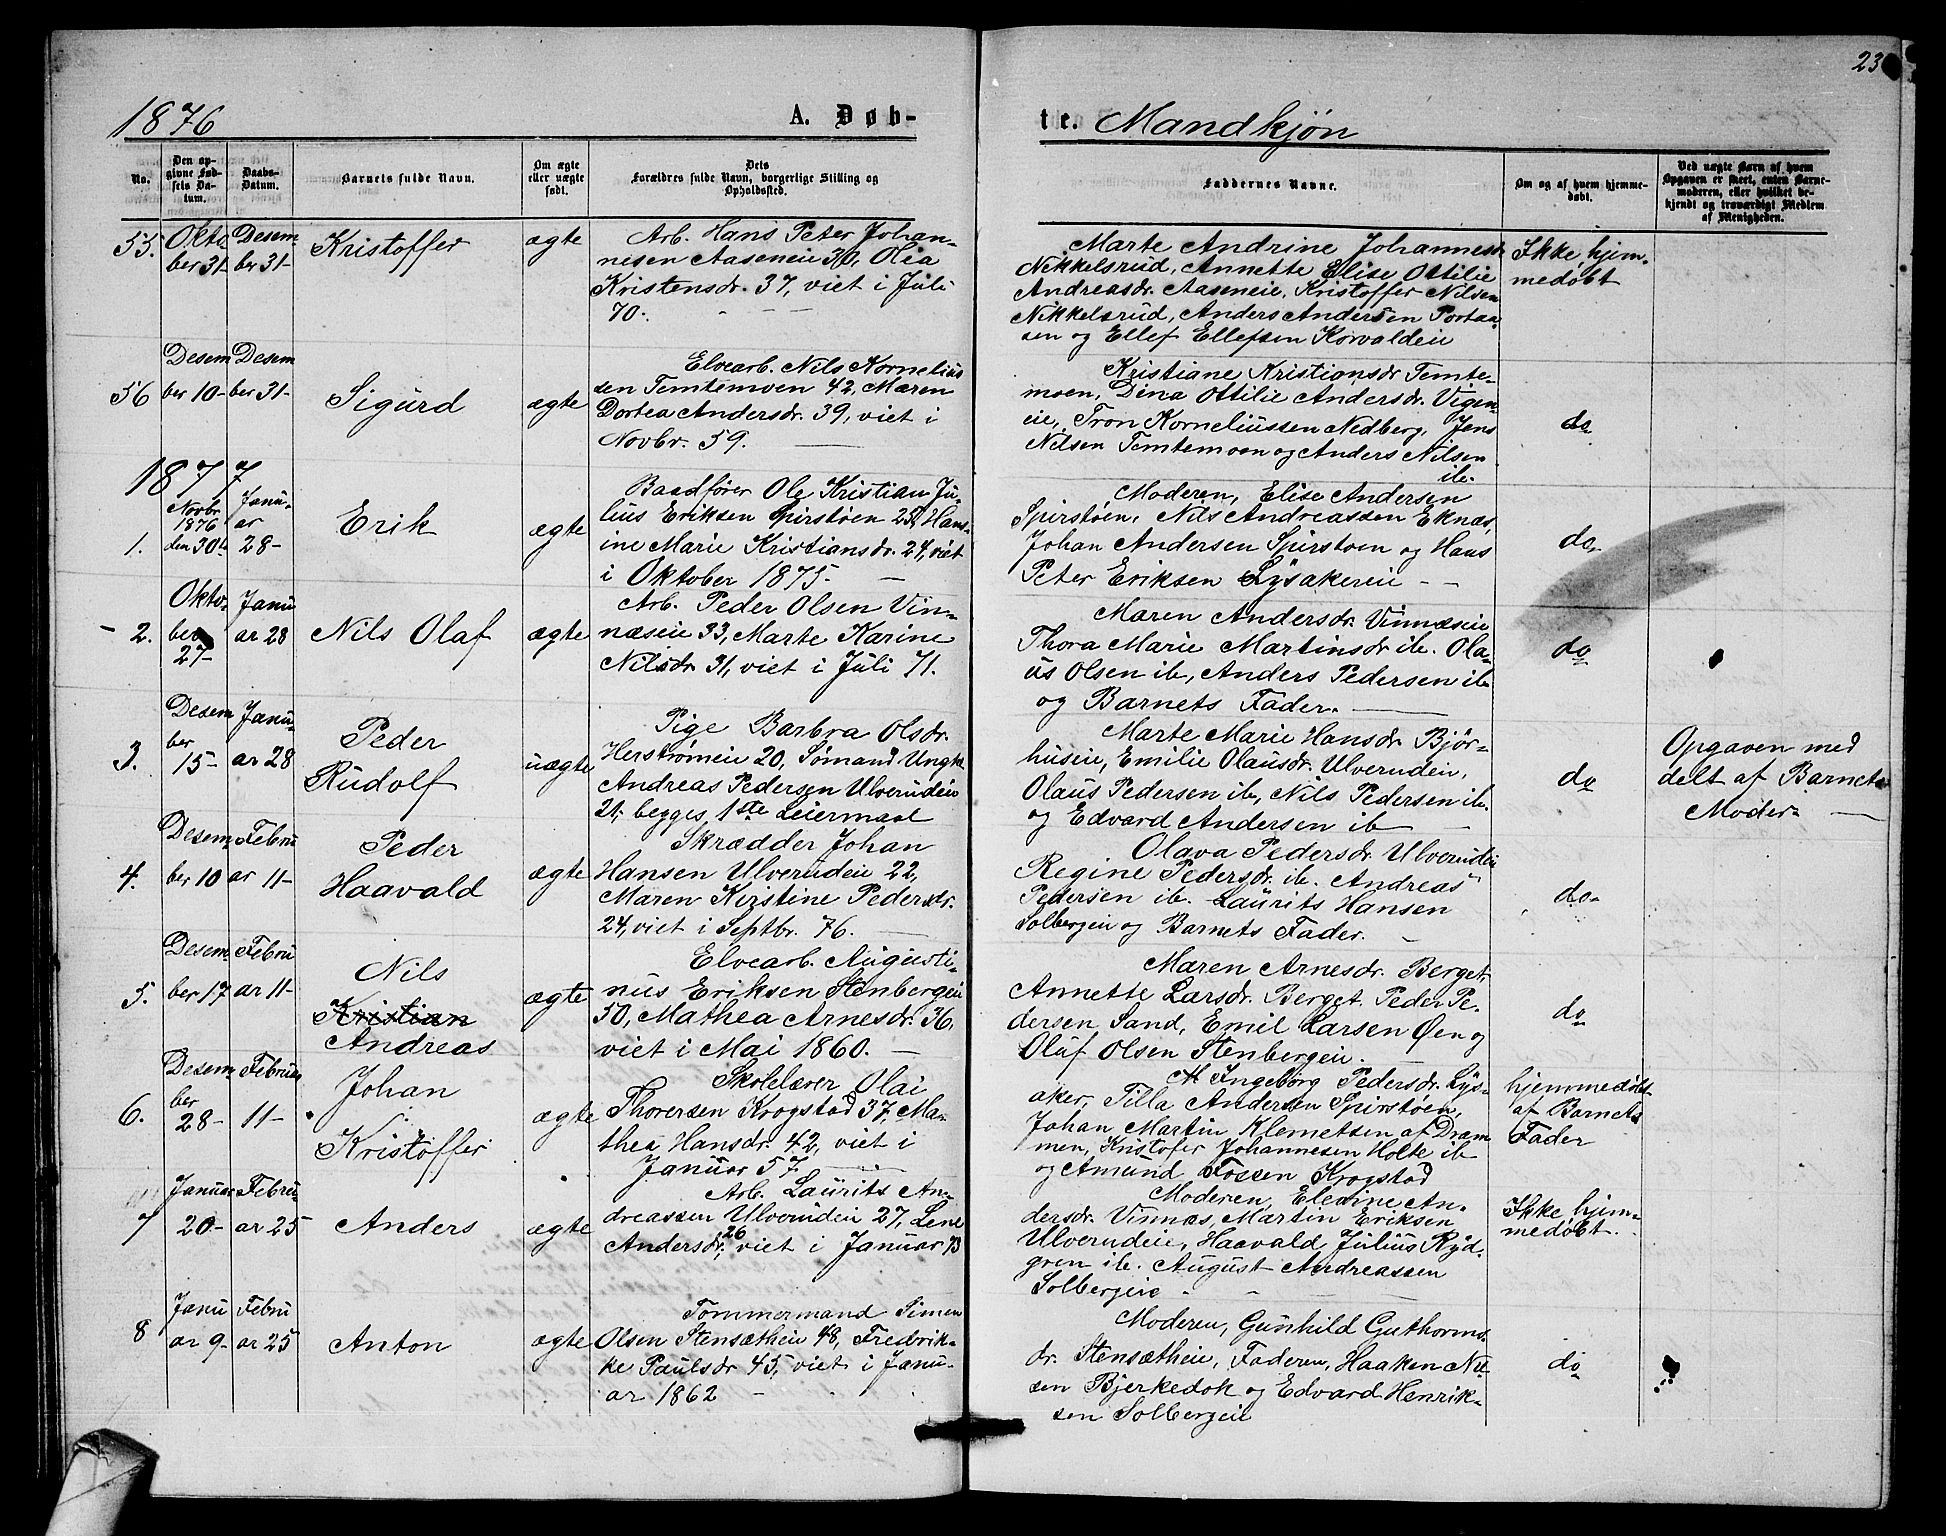 23
1876
A. Døb-
te. Mandkjøn
No.
Den op-
givne Fød-
sels Da-
tum.
Daabs-
Datum.
Barnets fulde Navn.
Om ægte
eller uægte
født.
Dets
Forældres fulde Navn, borgerlige Stilling og
Opholdssted.
Faddernes Navne.
Om og af hvem hjemme-
døbt.
Ved uægte Børn af hvem
Opgaven er skeet, enten Barne-
moderen, eller hvilket be-
kjendt og troværdigt Medlem
af Menigheden.
55.
Okto
ber 31-
Desem
ber 31-
Kristoffer
ægte
Arb. Hans Peter Johan-
nesen Aaseneie 30, Olia
Kristensdr. 37, viet i Juli
70.
Marte Andrine Johannesdr
Nikkelsrud, Annette Elise Ottilie
Andreasdr. Aaseneie, Kristoffer Nilsen
Nikkelsrud, Anders Andersen Portaa-
sen og Ellef Ellefsen Korvaldeie
Ikke hjem-
medøbt
56
Desem
ber 10-
Desem
ber 31-
Sigurd
ægte
Elvearb. Nils Kornelius
sen Temtemoen 42, Maren
Dortea Andersdr. 39, viet i
Novbr. 59.
Kristiane Kristiansdr Temte-
moen, Dina Ottilie Andersdr. Vigen-
eie, Tron Korneliussen Nedberg, Jens
Nilsen Temtemoen og Anders Nilsen
ib.
do
1877
1.
Novbr.
1876
den 30te
Janu-
ar
28-
Erik
ægte
Baadfører Ole Kristian Ju-
lius Eriksen Spirstøen 25, Hans-
ine Marie Kristiansdr. 24, viet
i Oktober 1875.
Moderen, Elise Andersen
Spirstøen, Nils Andreassen Eknæs,
Johan Andersen Spirstoen og Hans
Peter Eriksen Lysakereie
do
2.
Okto-
ber
27-
Janu
ar 28
Nils Olaf
ægte
Arb. Peder Olsen Vin-
næseie 33, Marte Karine
Nilsdr. 31, viet i Juli 71.
Maren Andersdr. Vinnæseie
Thora Marie Martinsdr ib. Ola-
us Olsen ib, Anders Pedersen ib
og Barnets Fader.
do
3.
Desem
ber
15-
Janu-
ar 28
Peder
Rudolf
uægte
Pige Barbra Olsdr.
Herstrømeie 20, Sømand Ungk.
Andreas Pedersen Ulverudeie
21, begges 1ste Leiermaal
Marte Marie Hansdr. Bjør-
huseie, Emilie Olausdr. Ulverudeie,
Olaus Pedersen ib, Nils Pedersen ib.
og Edvard Andersen ib
do
Opgaven med
delt af Barnets
Moder
4.
Desem
ber 10
Febru
ar 11-
Peder
Haavald
ægte
Skrædder Johan
Hansen Ulverudeie 22,
Maren Kirstine Pedersdr.
24, viet i Septbr. 76.
Olava Pedersdr. Ulverudeie
Regine Pedersdr. ib. Andreas
Pedersen ib. Laurits Hansen
Solbergeie og Barnets Fader.
do
5.
Desem
ber 17
Febru
ar 11-
Nils
Kristian
Andreas
ægte
Elvearb. Augusti-
nus Eriksen Stenbergeie
50, Mathea Arnesdr. 36,
viet i Mai 1860.
Maren Arnesdr. Berget,
Annette Larsdr. Berget. Peder Pe-
dersen Sand, Emil Larsen Øen og
Oluf Olsen Stenbergeie.
do
6.
Desem
ber
28-
Febru
11-
Johan
Kristoffer
ægte
Skolelærer Olai
Thorersen Krogstad 37, Ma-
thea Hansdr. 42, viet i
Januar 57
M Ingeborg Pedersdr. Lys-
aker, Tilla Andersen Spirstøen,
Johan Martin Klemetsen af Dram
men, Kristofer Johannesen Holte ib
og Amund Fossen Krogstad
hjemmedøbt
af Barnets
Fader
7
Januar
20-
Febru
ar 25
Anders
ægte
Arb. Laurits An-
dreassen Ulverudeie 27, Lene
Andersdr. 26 viet i Januar 73
Moderen, Elenine An-
dersdr. Vinnæs, Martin Eriksen
Ulverudeie, Haavald Julius Ryd-
gren ib. August Andreassen
Solbergeie
Ikke hjem-
medøbt.
8
Janu
ar 9-
Febru
ar 25
Anton
ægte
Tømmermand Simen
Olsen Stensætheie 48, Fredrik-
ke Paulsdr 45, viet i Janu-
ar 1862
Moderen, Gunhild Guthorms-
dr. Stensætheie, Faderen, Haaken Nil-
sen Bjerkedok og Edvard Henrik-
sen Solbergeie
do